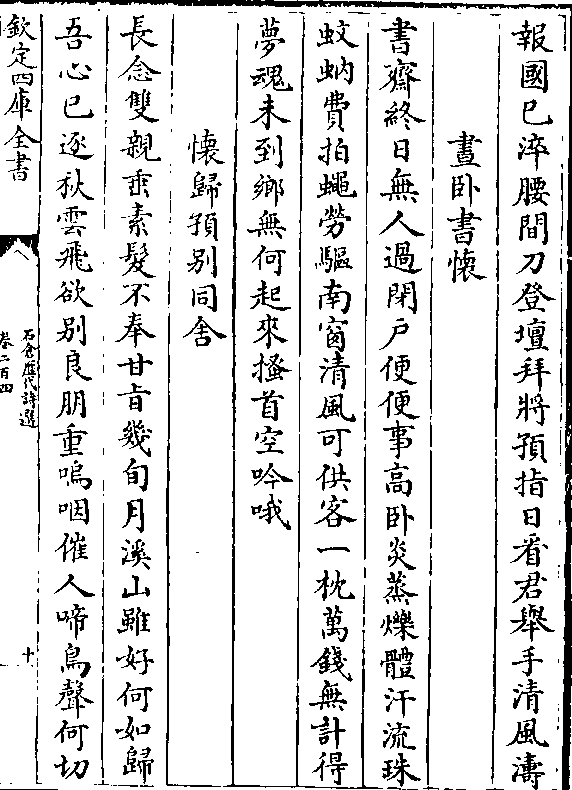 報國已淬腰間刀登壇拜將預指日看君舉手清風濤
晝卧書懷
書齋終日無人過閉户便便事高卧炎蒸爍體汗流珠
蚊蚋費拍蠅勞驅南窗清風可供客一枕萬錢無計得
夢魂未到鄉無何起來搔首空吟哦
懷歸預别同舍
長念雙親垂素髮不奉甘旨幾旬月溪山雖好何如歸
吾心已逐秋雲飛欲别良朋重嗚咽催人啼鳥聲何切
欽定四庫全書
石倉歷代詩選
卷二百四
十